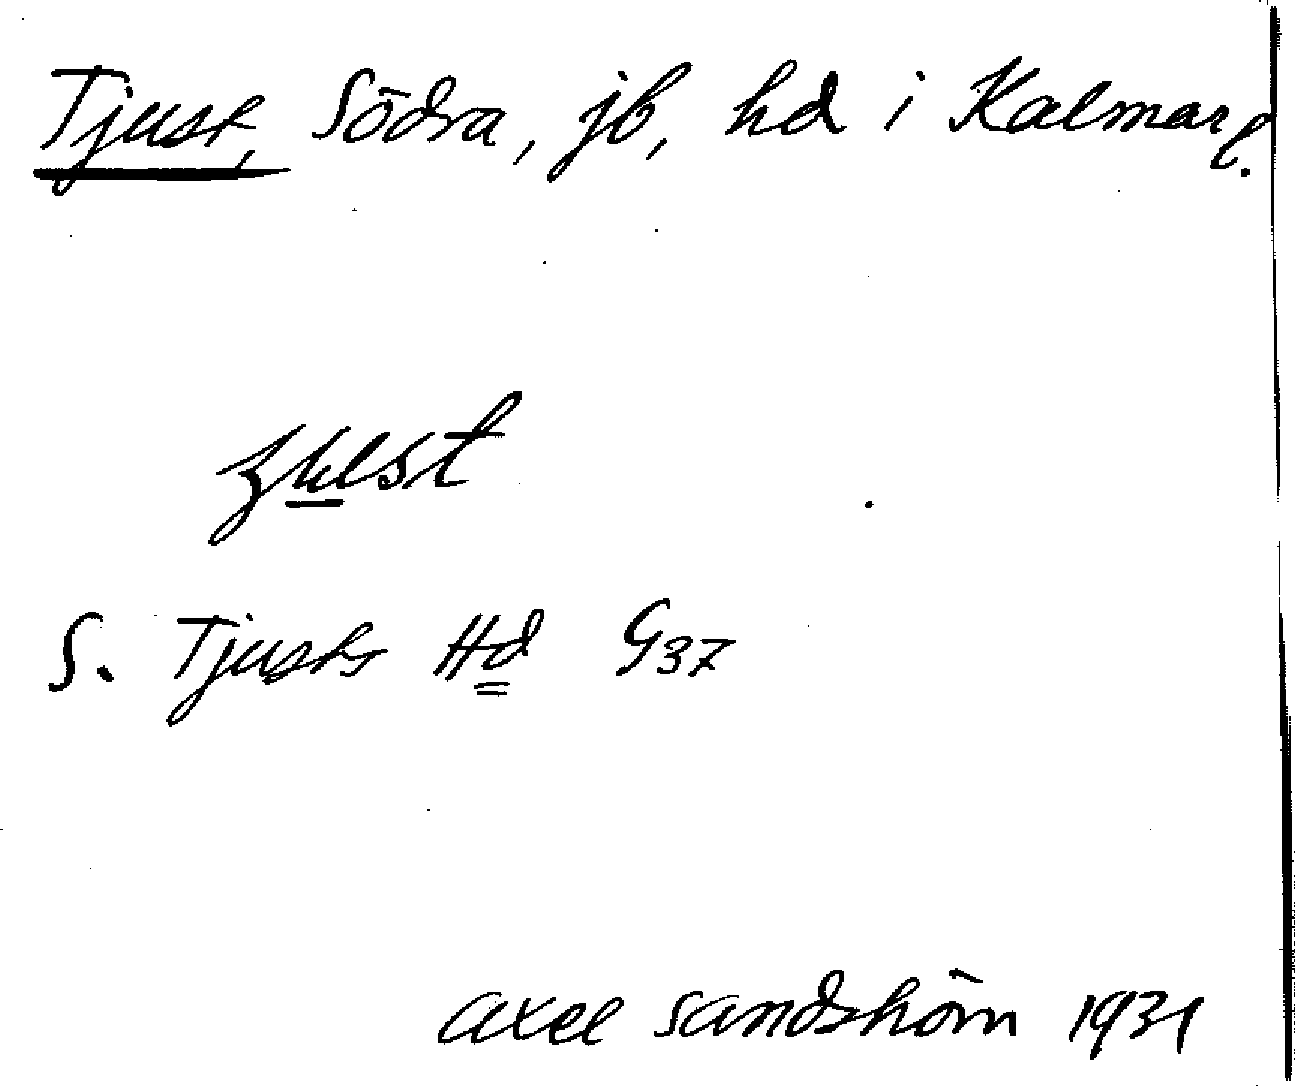 Tjust, Södra, jb, hd i Kalmar l.
ȝust
S. Tjusts Hd G37
Axel Sandshörn 1931